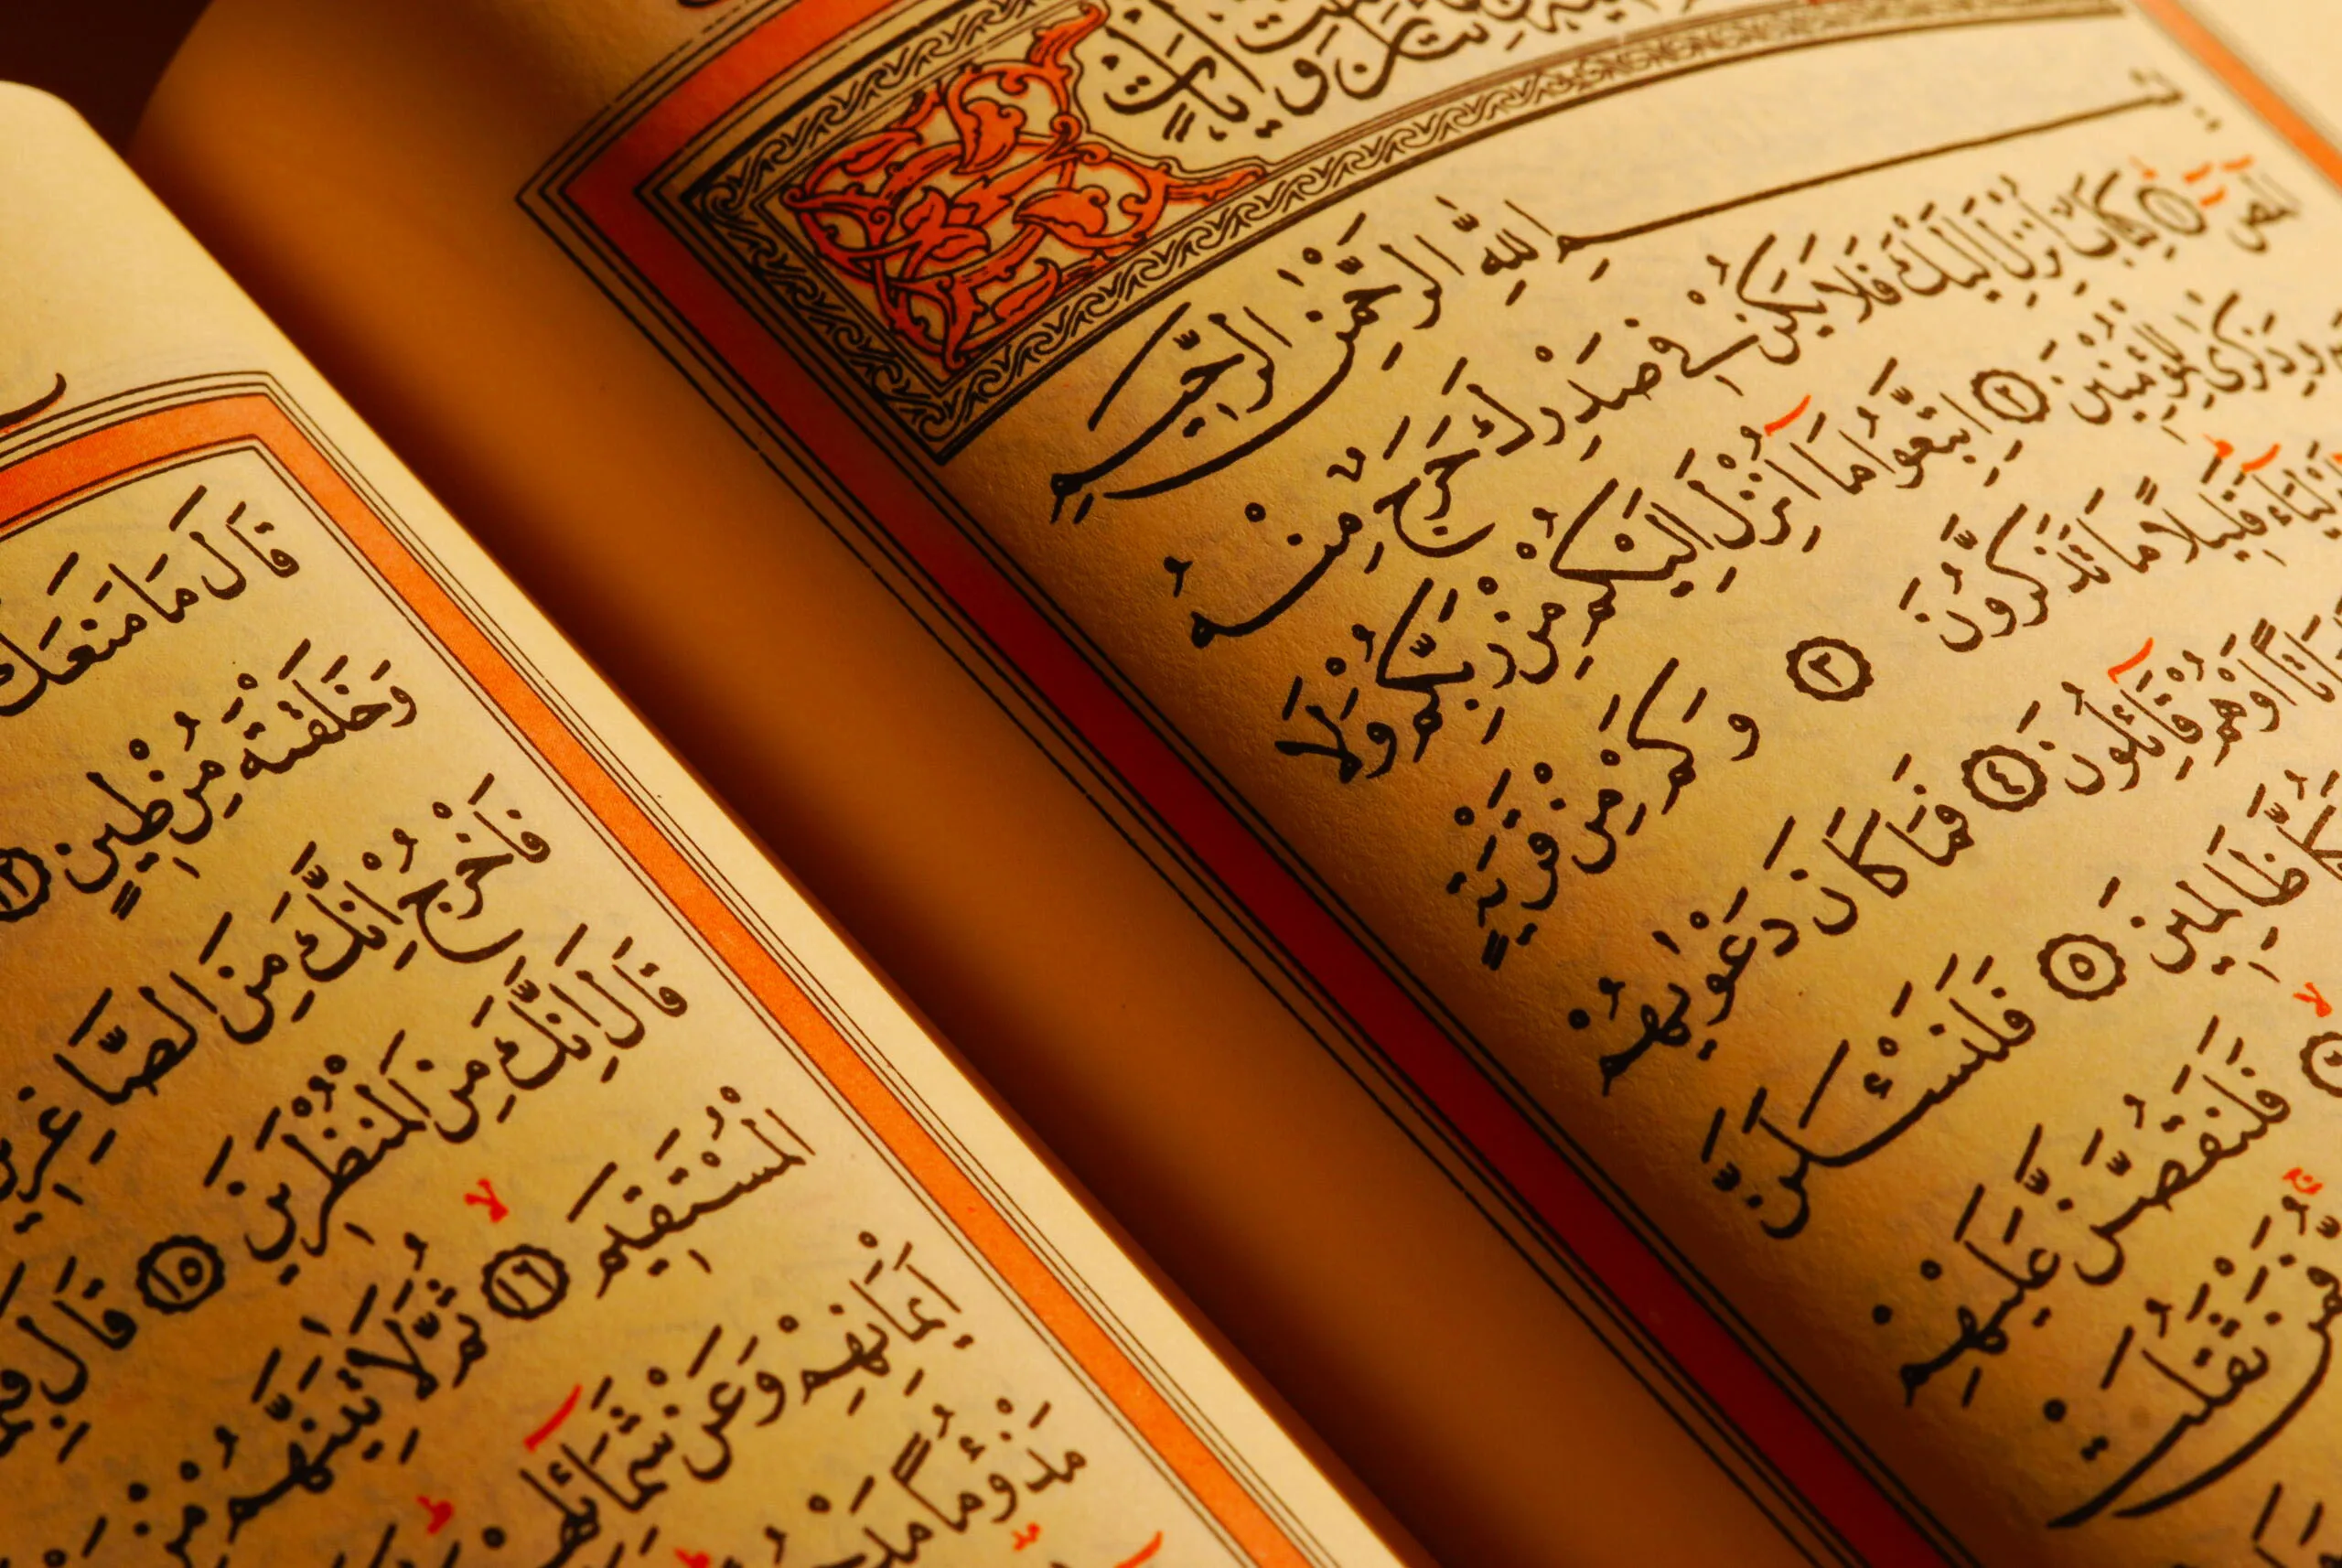 بِسْمِ اللهِ الرَّحْمٰنِ الرَّحِيمِ
الٓمٓصٓ ﴿١﴾ كِتَابٌ اُنْزِلَ اِلَيْكَ فَلَا يَكُنْ فِى صَدْرِكَ حَرَجٌ مِنْهُ
وَذِكْرٰى لِلْمُؤْمِنِينَ ﴿٢﴾ اِتَّبِعُوا مَٓا اُنْزِلَ اِلَيْكُمْ مِنْ رَبِّكُمْ وَلَا
قَلِيلًا مَا تَذَكَّرُونَ ﴿٣﴾ وَكَمْ مِنْ قَرْيَةٍ
اَوْ هُمْ قَٓائِلُونَ ﴿٤﴾ فَمَا كَانَ دَعْوٰيهُمْ
ظَالِمِينَ ﴿٥﴾ فَلَنَسْـَٔلَنَّ
فَلَنَقُصَّنَّ عَلَيْهِمْ
فَمَنْ ثَقُلَتْ
قَالَ مَا مَنَعَكَ
وَخَلَقْتَهُ مِنْ طِينٍ ﴿١٢﴾
فَاخْرُجْ اِنَّكَ مِنَ الصَّاغِرِينَ
قَالَ اِنَّكَ مِنَ الْمُنْظَرِينَ ﴿١٥﴾ قَالَ
الْمُسْتَقِيمَ ﴿١٦﴾ ثُمَّ لَاٰتِيَنَّهُمْ مِنْ
اَيْمَانِهِمْ وَعَنْ شَمَٓائِلِهِمْ
مَذْؤُمًا